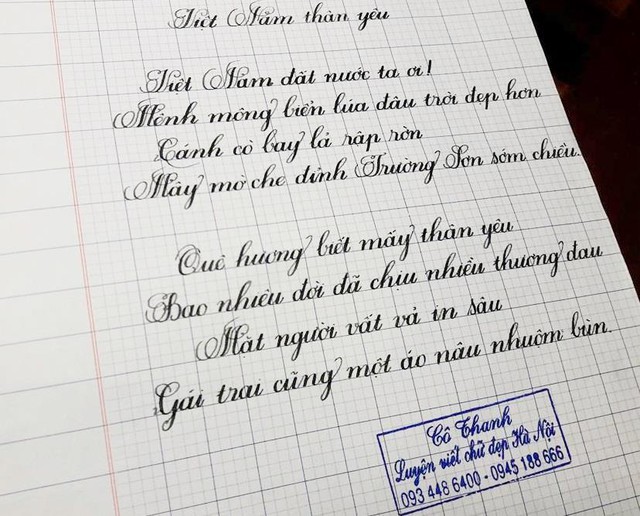 Việt Nam thân yêu
Việt Nam đất nước ta ơi!
Mênh mông biển lúa đâu trời đẹp hơn
Cánh cò bay lả rập rờn
Mây mờ che đỉnh Trường Sơn sớm chiều.
Quê hương biết mấy thân yêu
Bao nhiêu đời đã chịu nhiều thương đau
Mặt người vất vả in sâu
Gái trai cũng một áo nâu nhuộm bùn.
Cô Thanh
Luyện viết chữ đẹp Hà Nội
093 448 6400 - 0945 188 666